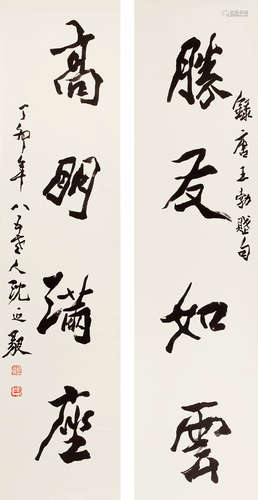 勝友如雲
錄唐王勃句
高朋滿座
丁卯年八五老人沈延毅